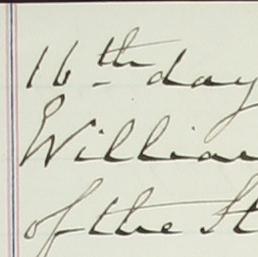 16th day
William
of the St